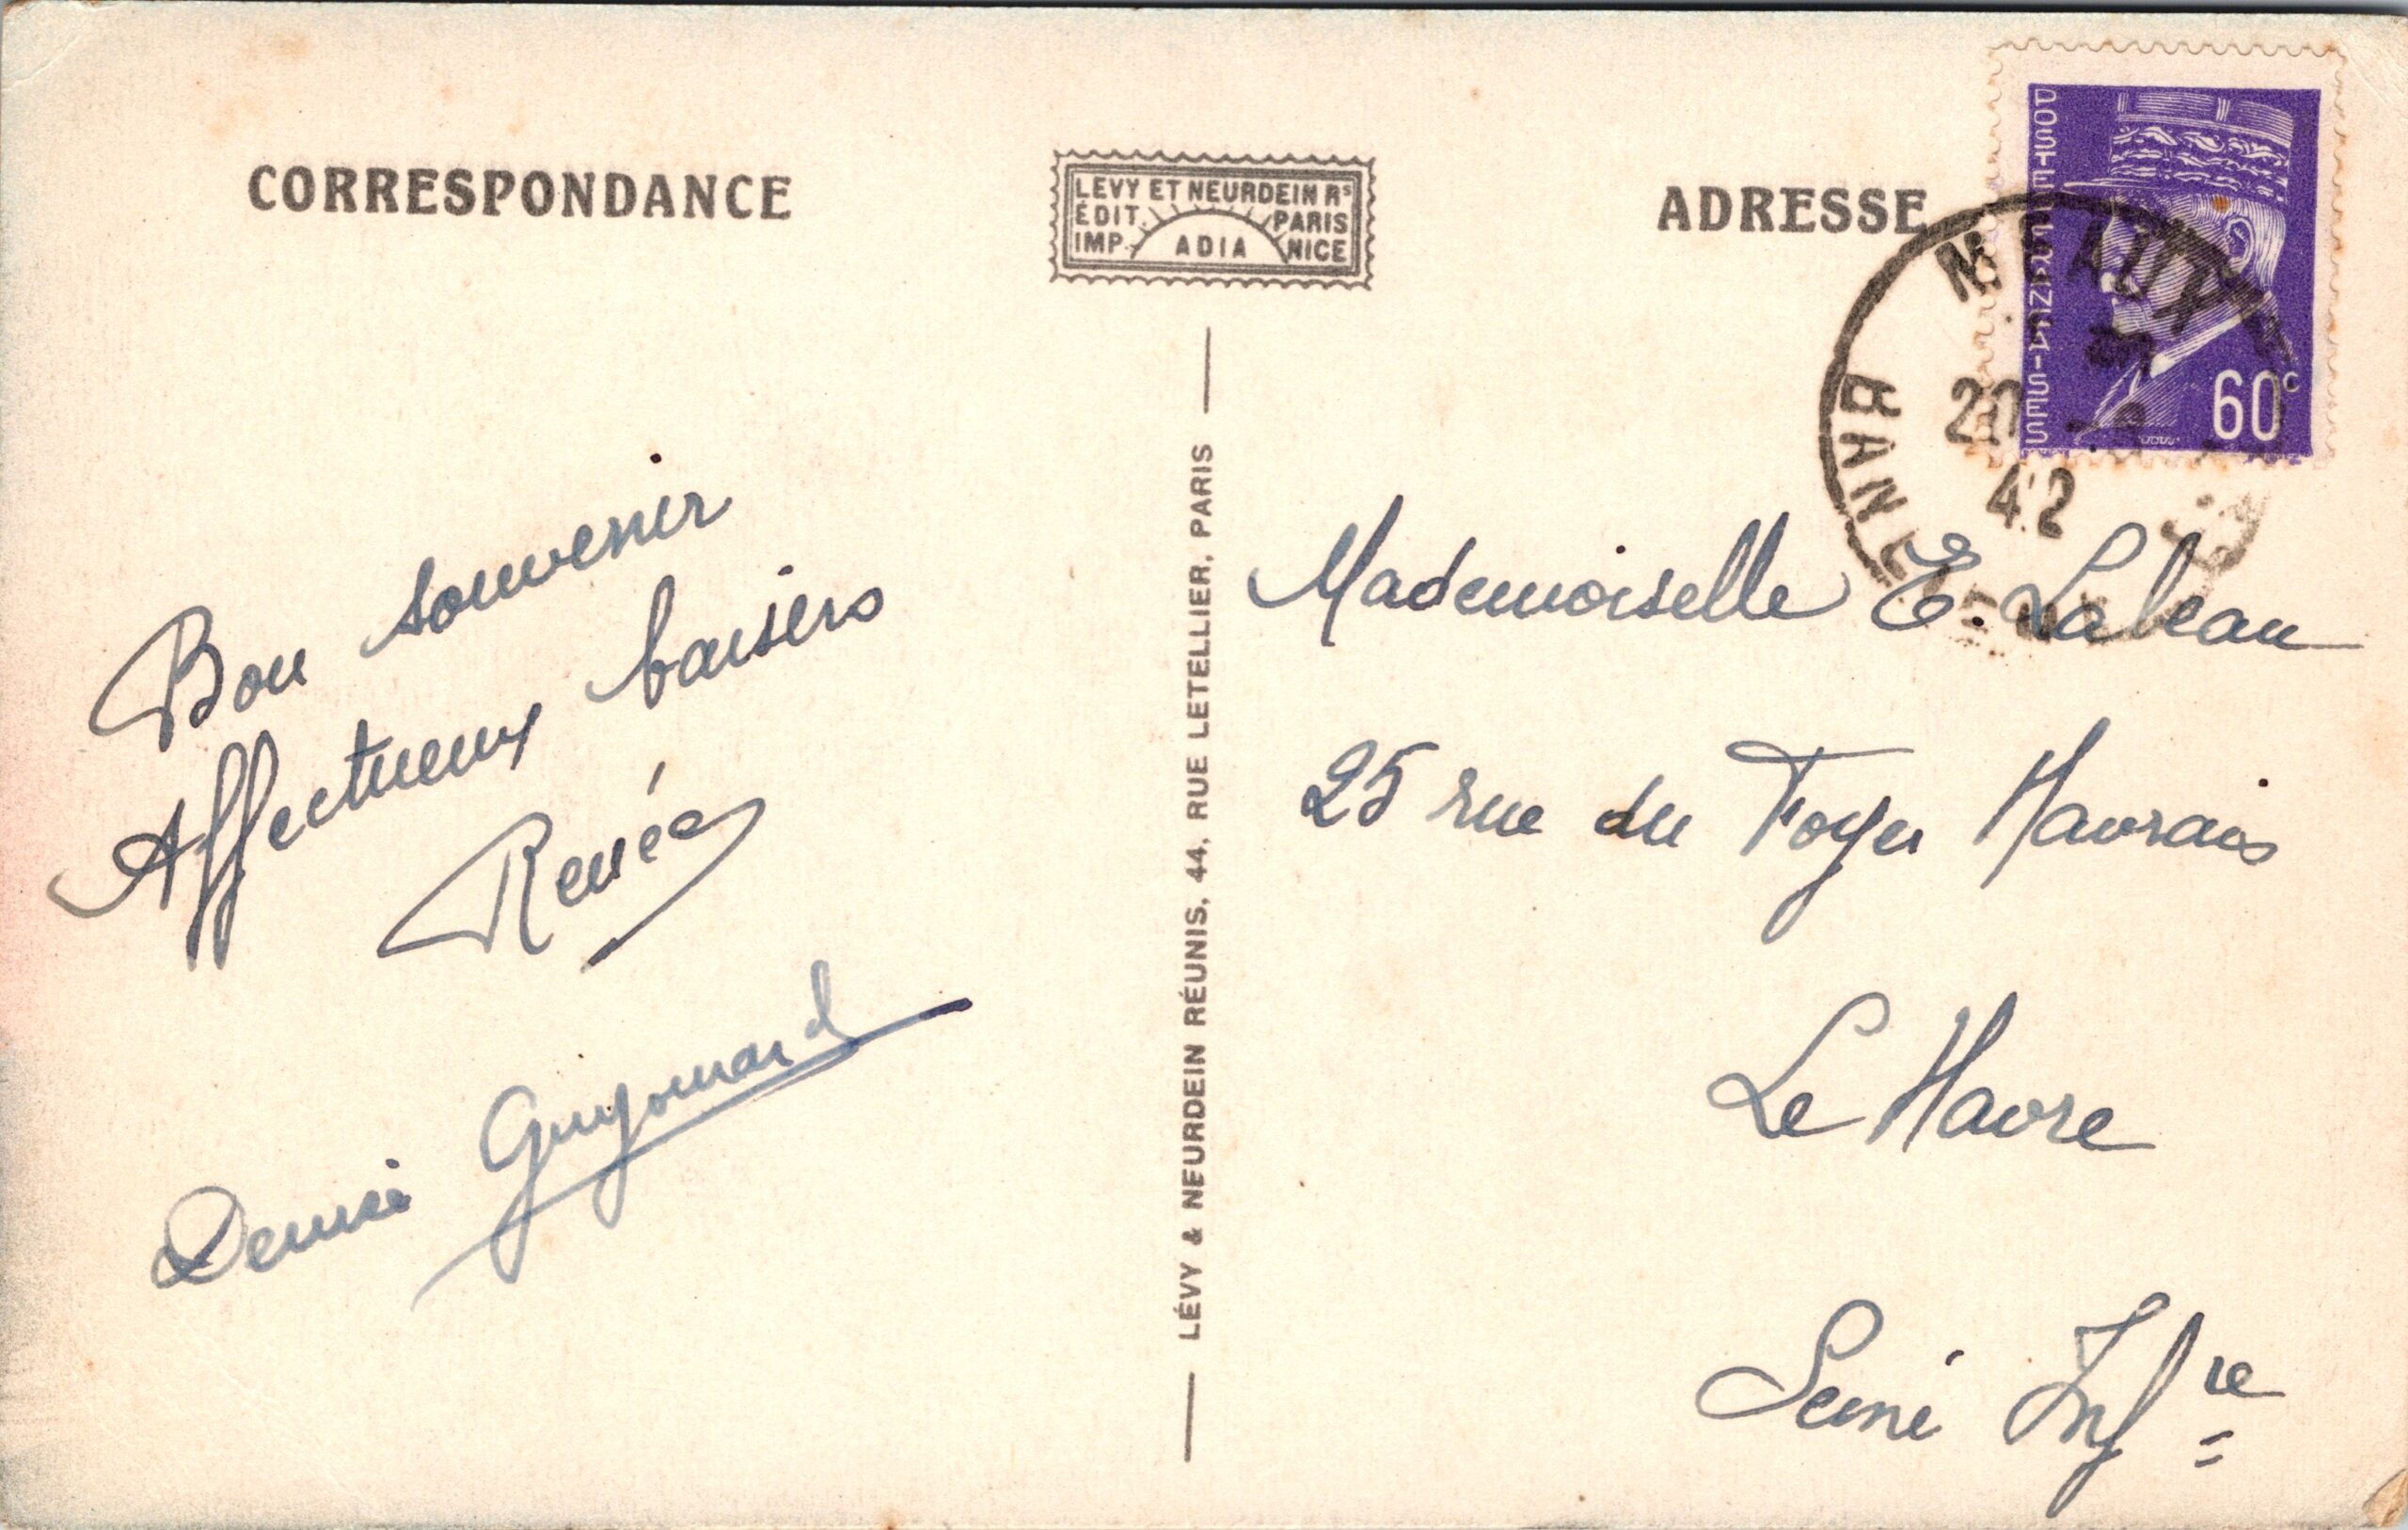 CORRESPONDANCE
LEVY ET NEURDEIN Rs
ÉDIT. PARIS
IMP. ADIA NICE
ADRESSE
POSTES FRANÇAISES
60c
MEAUX
20
42
Bon souvenir
Affectueux baisers
Renée
Denise Guyomard
LÉVY & NEURDEIN RÉUNIS, 44, RUE LETELLIER, PARIS
Mademoiselle E. Labeau
25 rue du Foyer Havrais
Le Havre
Seine Infre